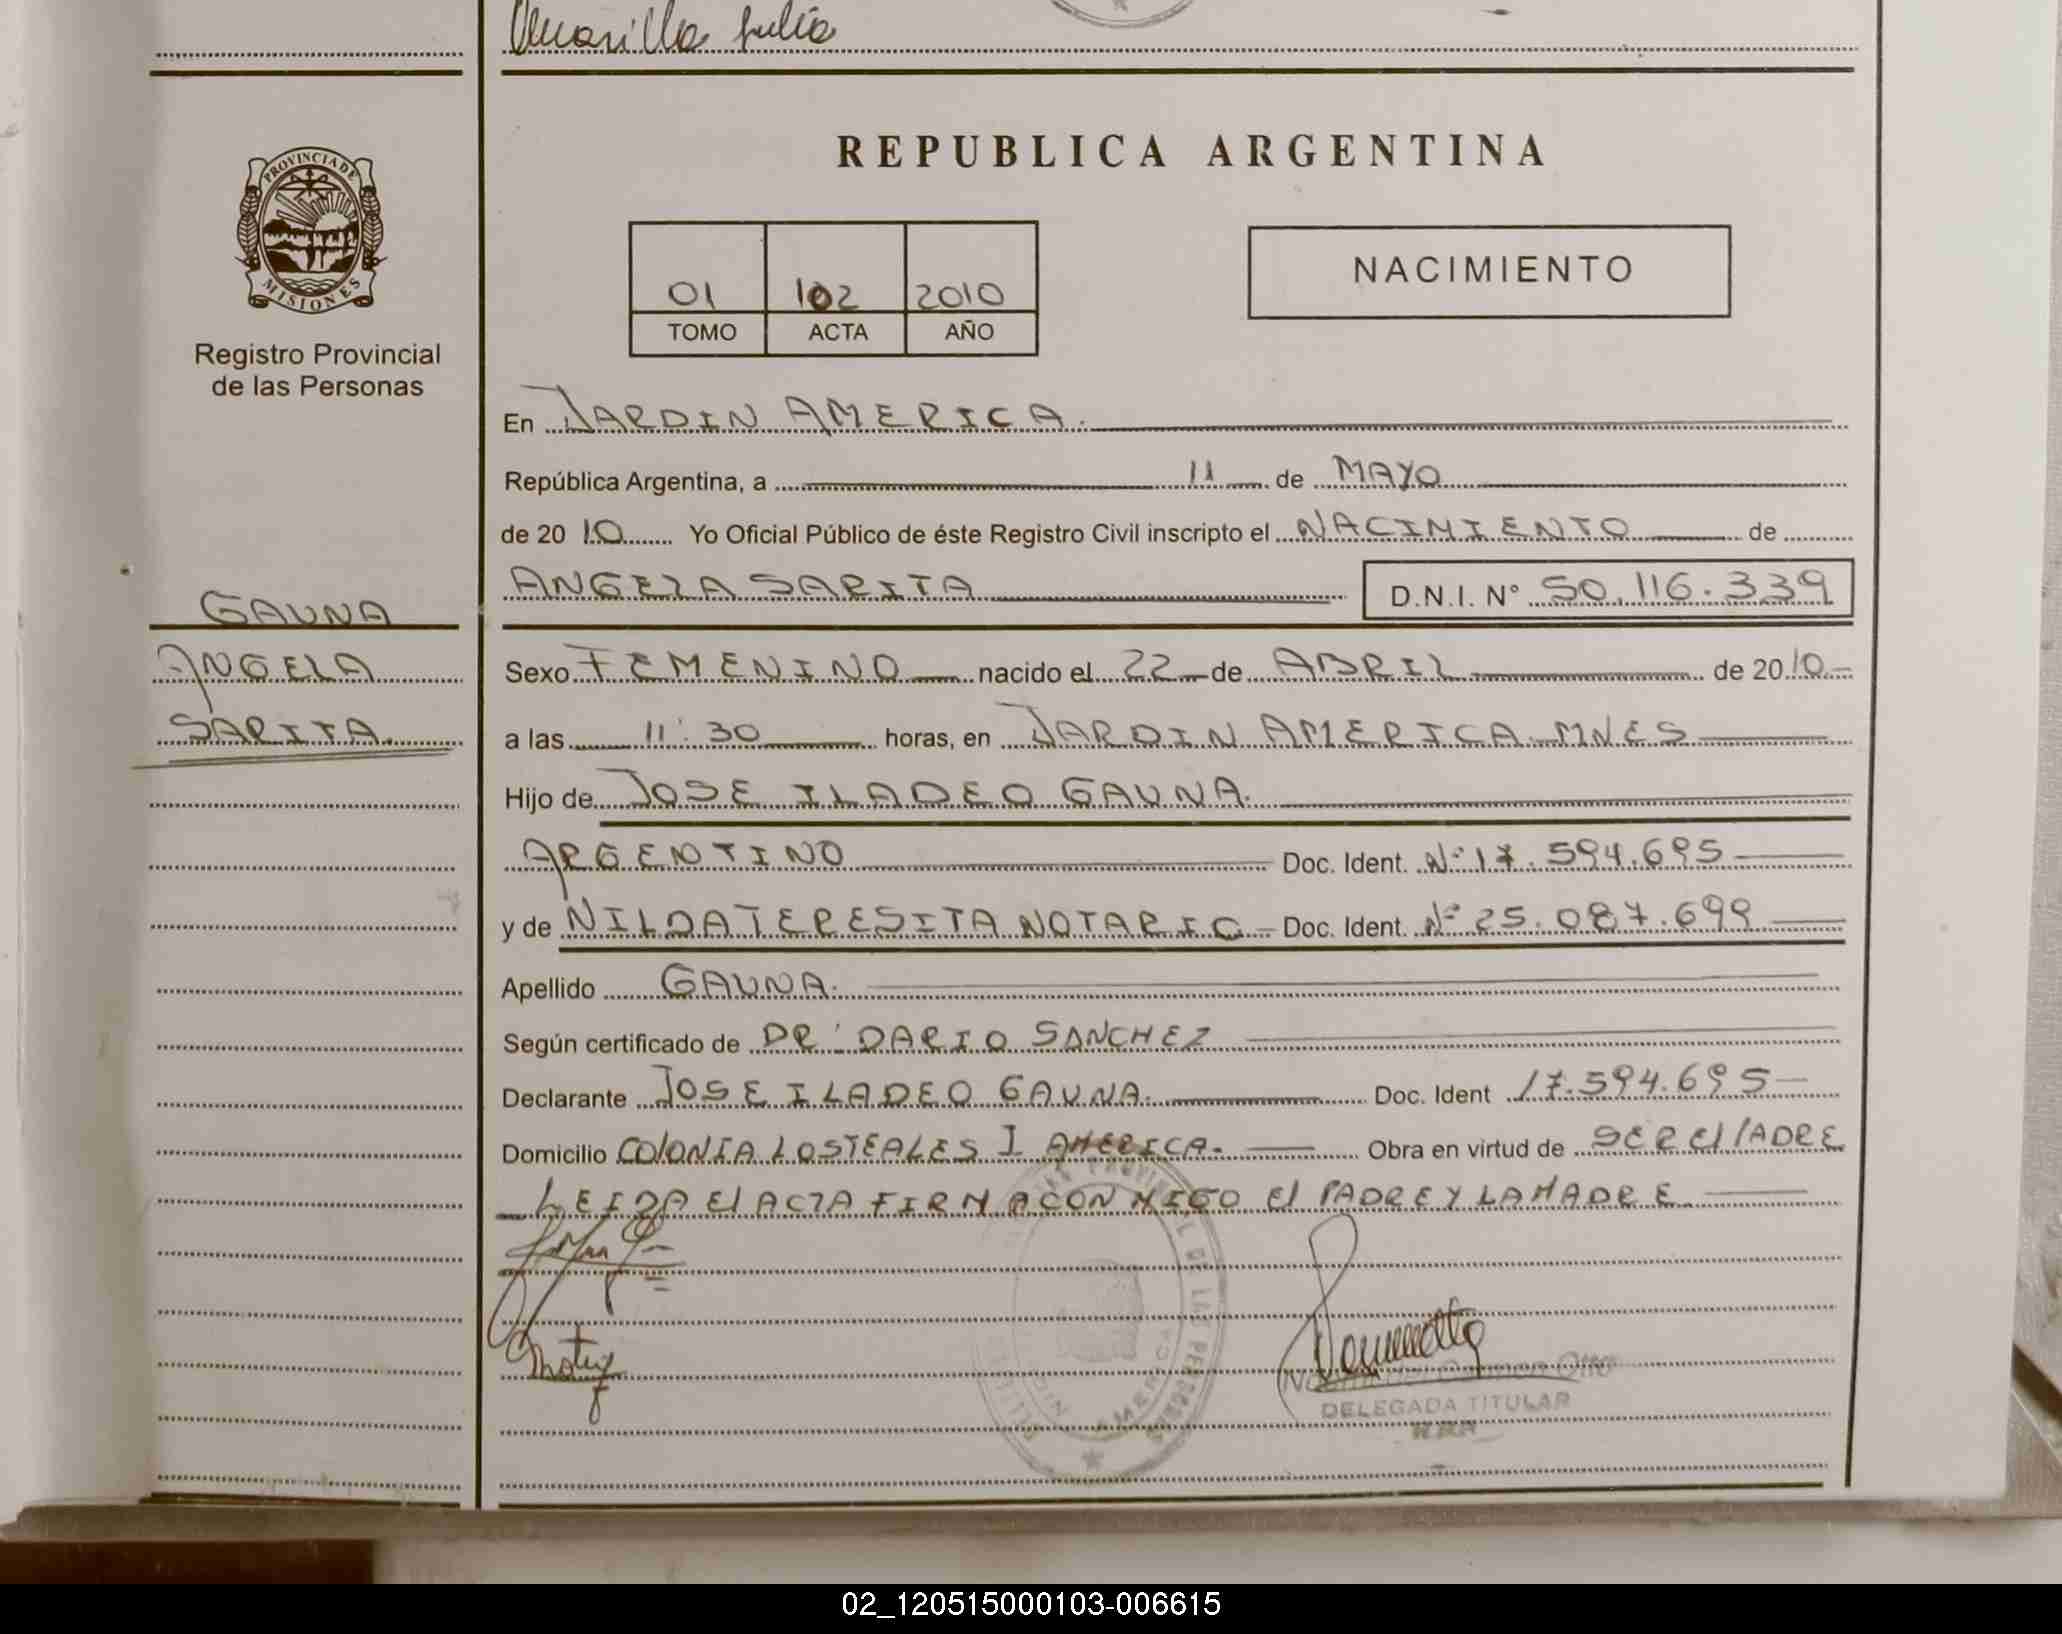 Amarilla Julia
PROVINCIA DE
MISIONES
Registro Provincial
de las Personas
GAUNA
ANGELA
SARITA.
REPUBLICA ARGENTINA
01 102 2010
TOMO ACTA AÑO
NACIMIENTO
En JARDIN AMERICA.
República Argentina, a 11 de MAYO
de 20 10 Yo Oficial Público de éste Registro Civil inscripto el NACIMIENTO de
ANGELA SARITA D.N.I. N° 50.116.339
Sexo FEMENINO nacido el 22 de ABRIL de 20 10
a las 11:30 horas, en JARDIN AMERICA MNES
Hijo de JOSE ILADEO GAUNA.
ARGENTINO Doc. Ident. Nº 17.594.695
y de NILDA TERESITA NOTARIO Doc. Ident. Nº 25.087.699
Apellido GAUNA.
Según certificado de DR. DARIO SANCHEZ
Declarante JOSE ILADEO GAUNA. Doc. Ident 17.594.695
Domicilio COLONIA LOS TEALES I AMERICA. Obra en virtud de SER El PADRE
LEIDA El ACTA FIRMA CONMIGO El PADRE Y LA MADRE
Carmen Otto
DELEGADA TITULAR
02_120515000103-006615